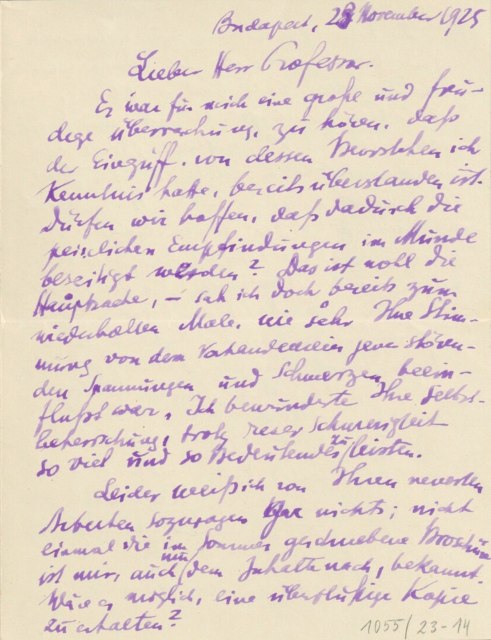 Budapest, 28 November 1925
Lieber Herr Professor.
Es war für mich eine große und freu-
dige Überraschung, zu hören, daß
der Eingriff, von dessen Bevorstehen ich
Kenntnis hatte, bereits überstanden ist.
Dürfen wir hoffen, daß dadurch die
peinlichen Empfindungen im Munde
beseitigt werden? Das ist wohl die
Hauptsache, – sah ich doch bereits zum
wiederholten Male, wie sehr Ihre Stim-
mung von dem Vorhandensein jener stören-
den Spannungen und Schmerzen beein-
flußt war. Ich bewunderte Ihre Selbst-
beherrschung, trotz dieser Schwierigkeit
so viel und so Bedeutendes zu leisten.
Leider weiß ich von Ihren neuesten
Arbeiten sozusagen gar nichts; nicht
einmal die im Sommer geschriebene Broschüre
ist mir, auch nur dem Inhalte nach, bekannt.
Wäre es möglich, eine überflüssige Kopie
zu erhalten?
1055/23-14